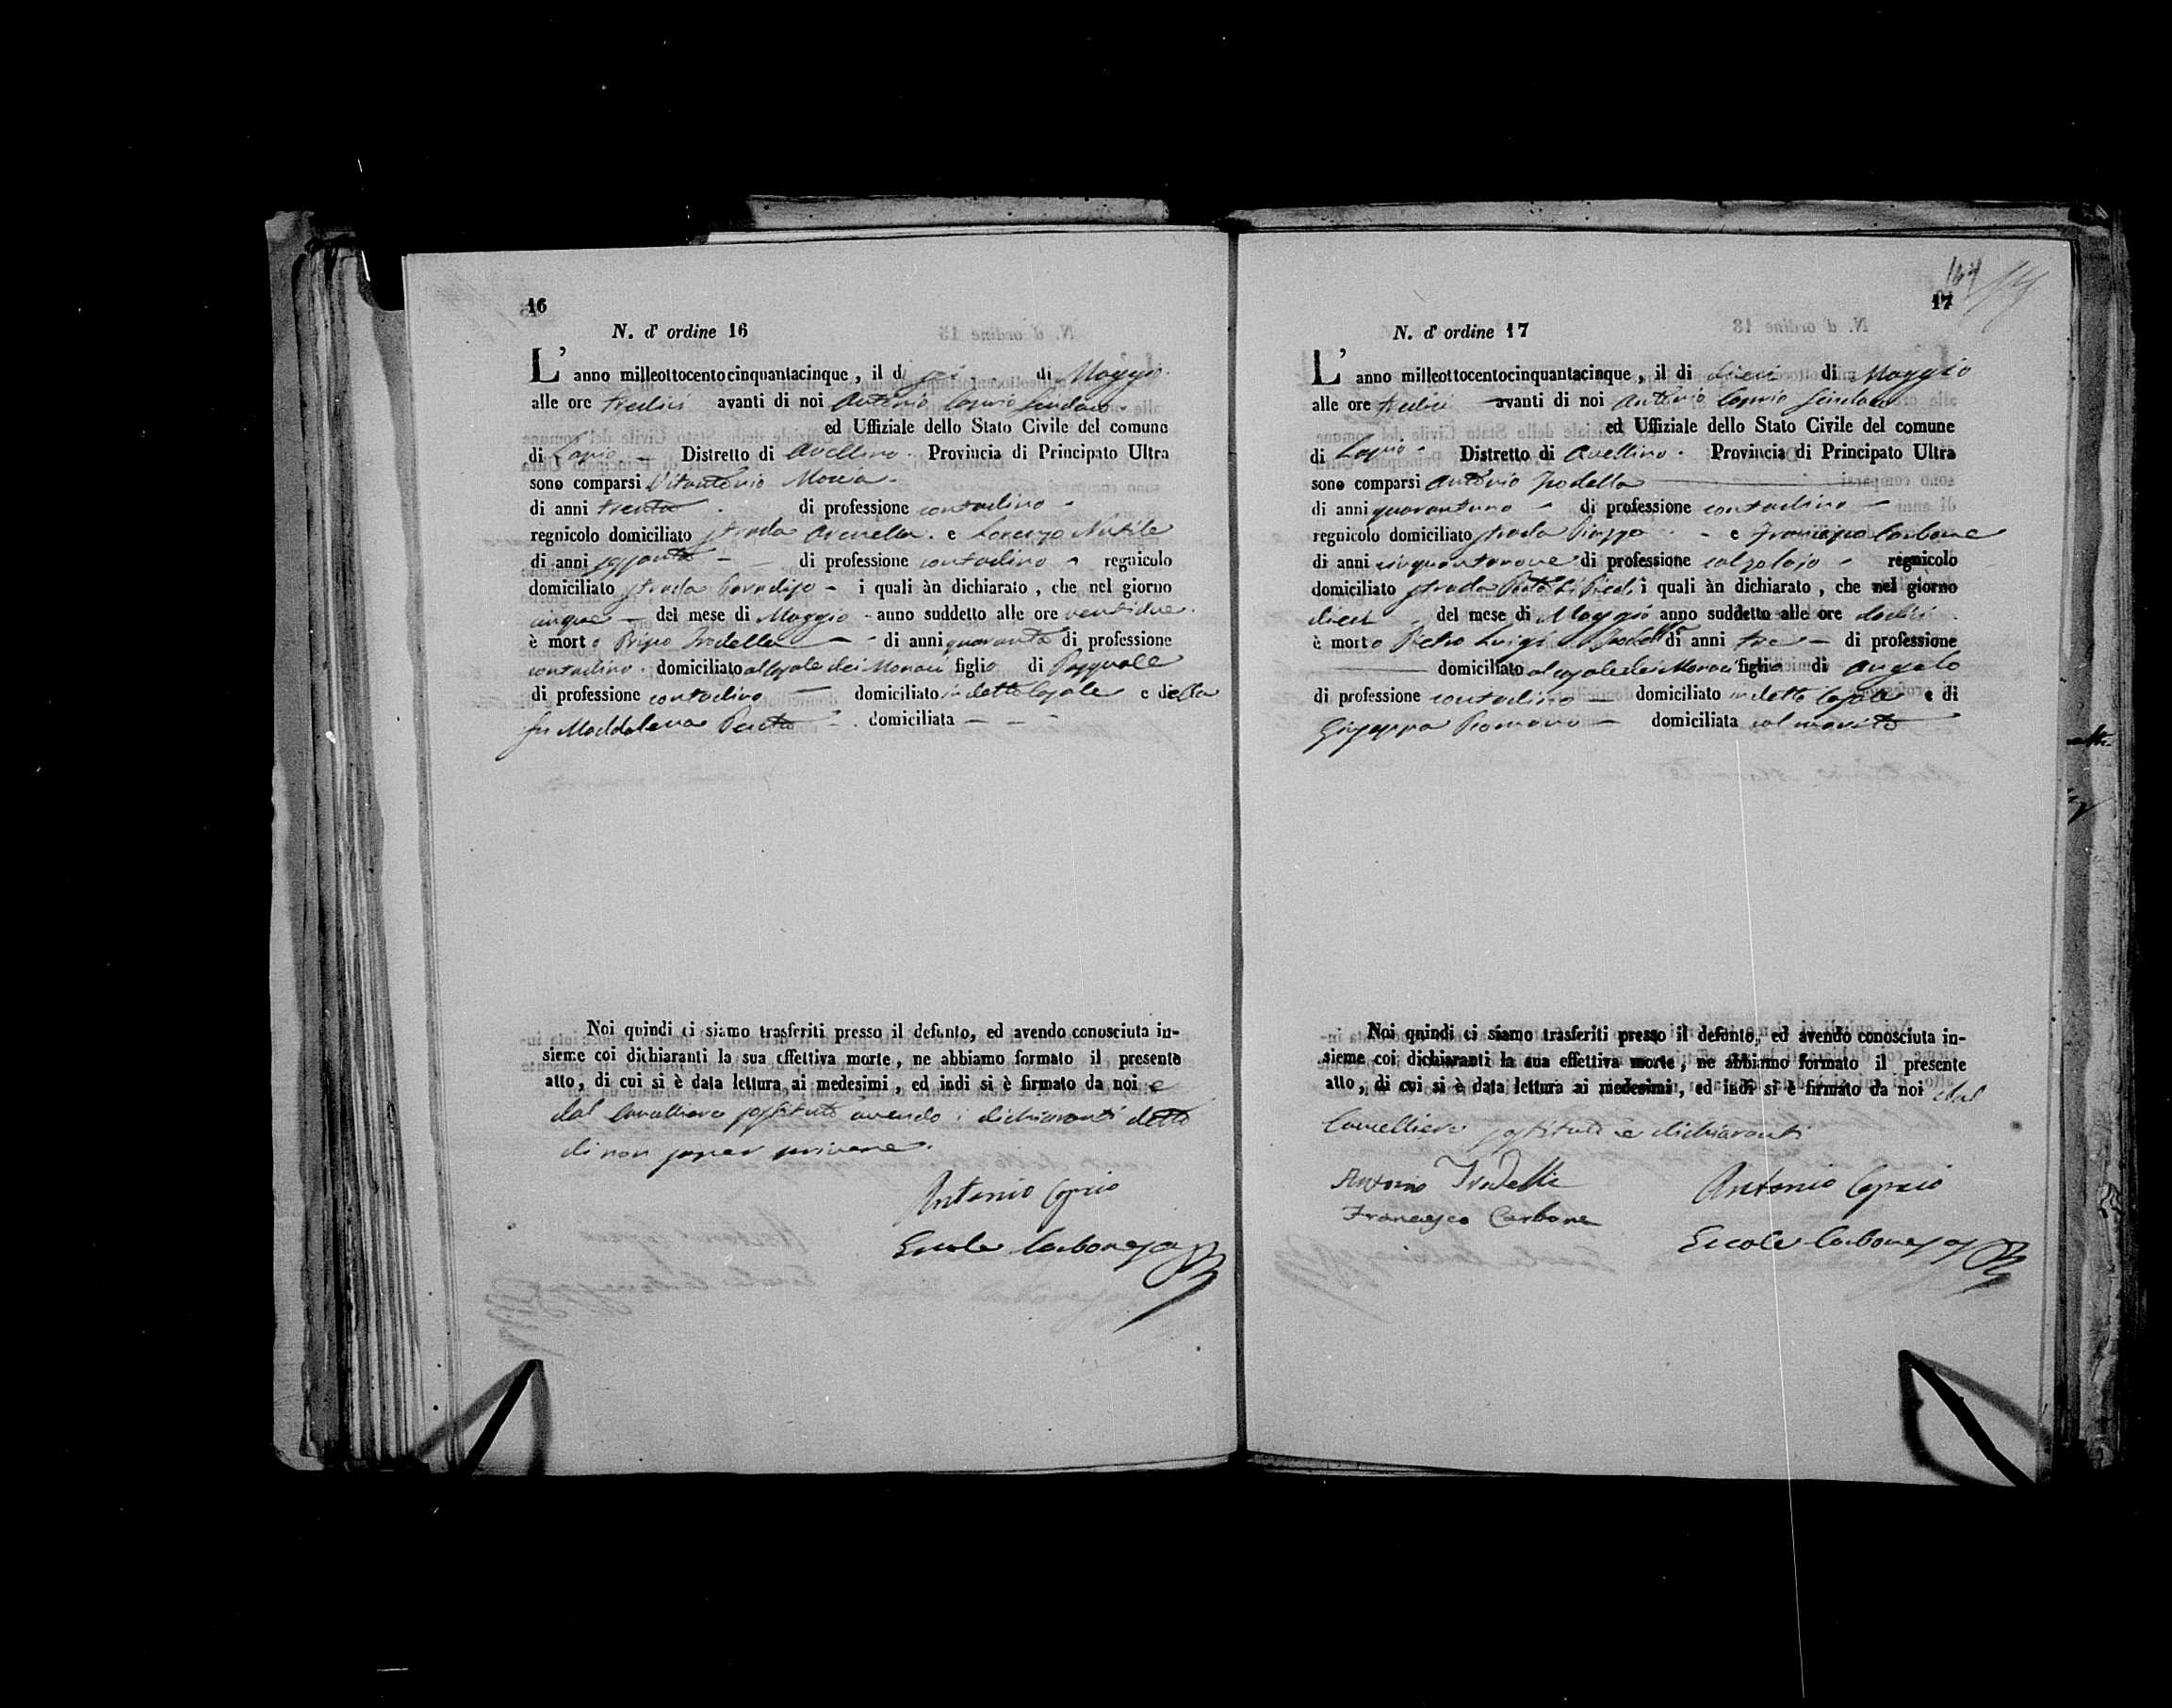 16
N. d' ordine 16
L' anno milleottocentocinquantacinque, il d sei di Maggio
alle ore tredici avanti di noi Antonio Caprio Sindaco
ed Uffiziale dello Stato Civile del comune
di Lapio Distretto di Avellino. Provincia di Principato Ultra
sono comparsi Vitantonio Moccia
di anni trenta di professione contadino
regnicolo domiciliato strada e Lorenzo Nutile
di anni sessanta di professione contadino regnicolo
domiciliato strada Paradiso i quali àn dichiarato, che nel giorno
cinque del mese di Maggio anno suddetto alle ore ventidue
è morto Prisco Irodella di anni quaranta di professione
contadino. domiciliato al casale dei Monaci figlio di Pasquale
di professione contadino domiciliato in detto casale e della
fu Maddalena domiciliata
Noi quindi ci siamo trasferiti presso il defunto, ed avendo conosciuta in-
sieme coi dichiaranti la sua effettiva morte, ne abbiamo formato il presente
atto, di cui si è data lettura ai medesimi, ed indi si è firmato da noi e
dal Cancelliere sostituto avendo i dichiaranti detto
di non saper scrivere.
Antonio Caprio
Ercole Carbone
17
N. d' ordine 17
L' anno milleottocentocinquantacinque, il di dieci di Maggio
alle ore tredici avanti di noi Antonio Caprio Sindaco
ed Uffiziale dello Stato Civile del comune
di Lapio Distretto di Avellino. Provincia di Principato Ultra
sono comparsi Antonio Irodella
di anni quarantuno di professione contadino
regnicolo domiciliato strada Piazza e Francesco Carbone
di anni cinquantanove di professione calzolajo regnicolo
domiciliato strada i quali àn dichiarato, che nel giorno
dieci del mese di Maggio anno suddetto alle ore dodici
è morto Pietro Luigi Irodella di anni tre di professione
domiciliato al casale dei Monaci figlio di Angelo
di professione contadino domiciliato in detto casale e di
Giuseppa Romano domiciliata col marito
Noi quindi ci siamo trasferiti presso il defunto, ed avendo conosciuta in-
sieme coi dichiaranti la sua effettiva morte, ne abbiamo formato il presente
atto, di cui si è data lettura ai medesimi, ed indi si è firmato da noi dal
Cancelliere sostituto e dichiaranti
Antonio Irodella
Antonio Caprio
Francesco Carbone
Ercole Carbone